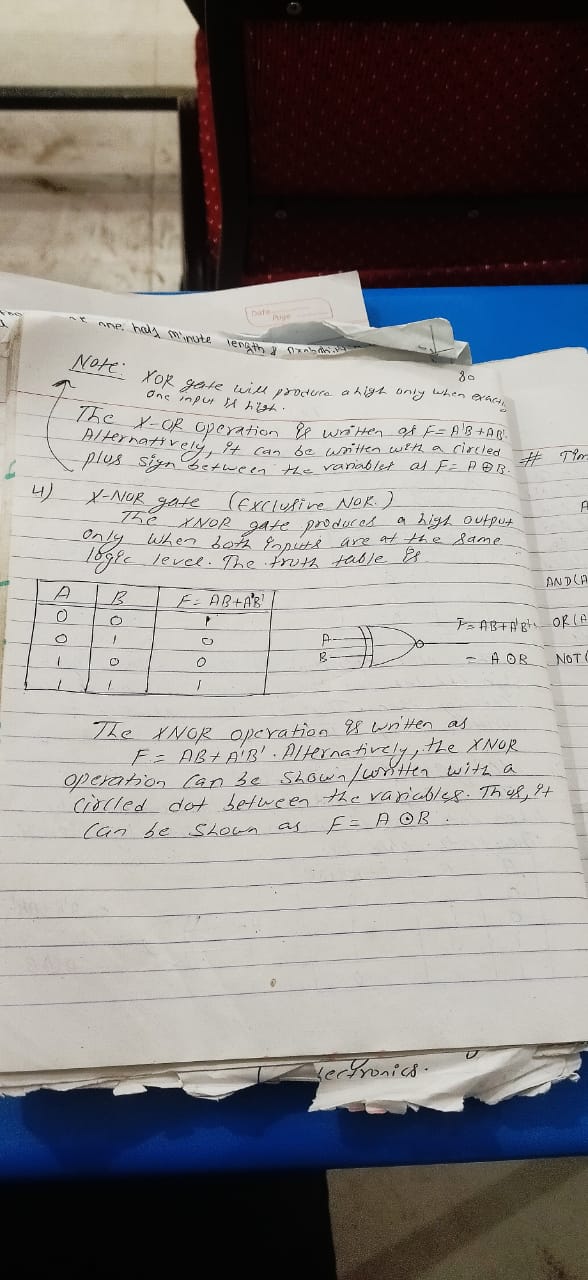 Date
Page
one, half minute length &
80
Note: XOR gate will produce a high only when exactly
one input is high.
The X-OR operation is written as F = A'B + AB'.
Alternatively, it can be written with a circled
plus sign between the variables as F = A ⊕ B.
4) X-NOR gate (Exclusive NOR.)
The XNOR gate produces a high output
only when both inputs are at the same
logic level. The truth table is
A B F = AB + A'B'
0 0 1
0 1 0
1 0 0
1 1 1
A
B
F = AB + A'B'
= A ⊙ B
The XNOR operation is written as
F = AB + A'B'. Alternatively, the XNOR
operation can be shown/written with a
circled dot between the variables. Thus, it
can be shown as F = A ⊙ B.
# Tim
AND (A
OR (A
NOT (
ectronics.